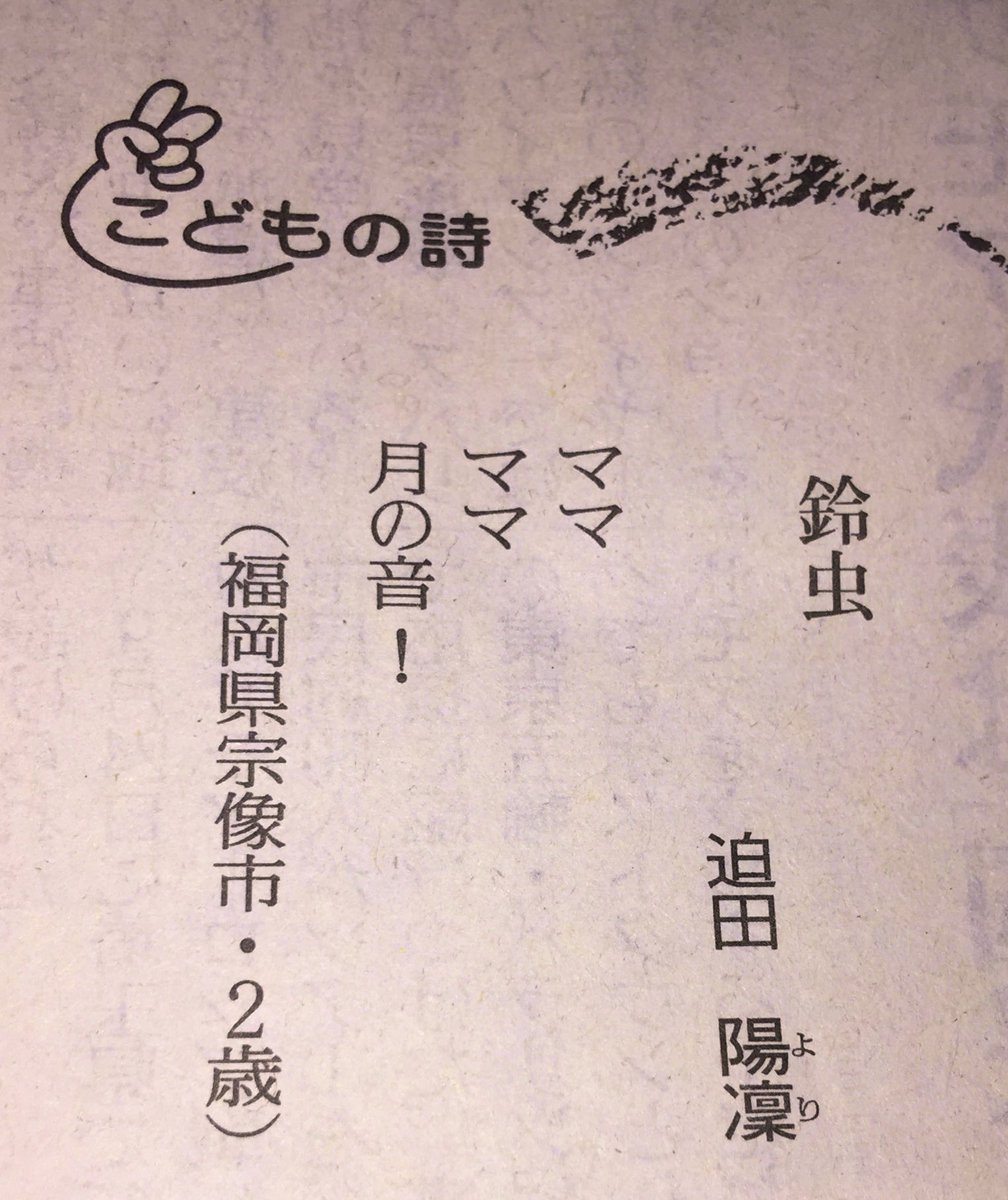 こどもの詩
鈴虫
迫田 陽凜
より
ママ
ママ
月の音！
（福岡県宗像市・2歳）